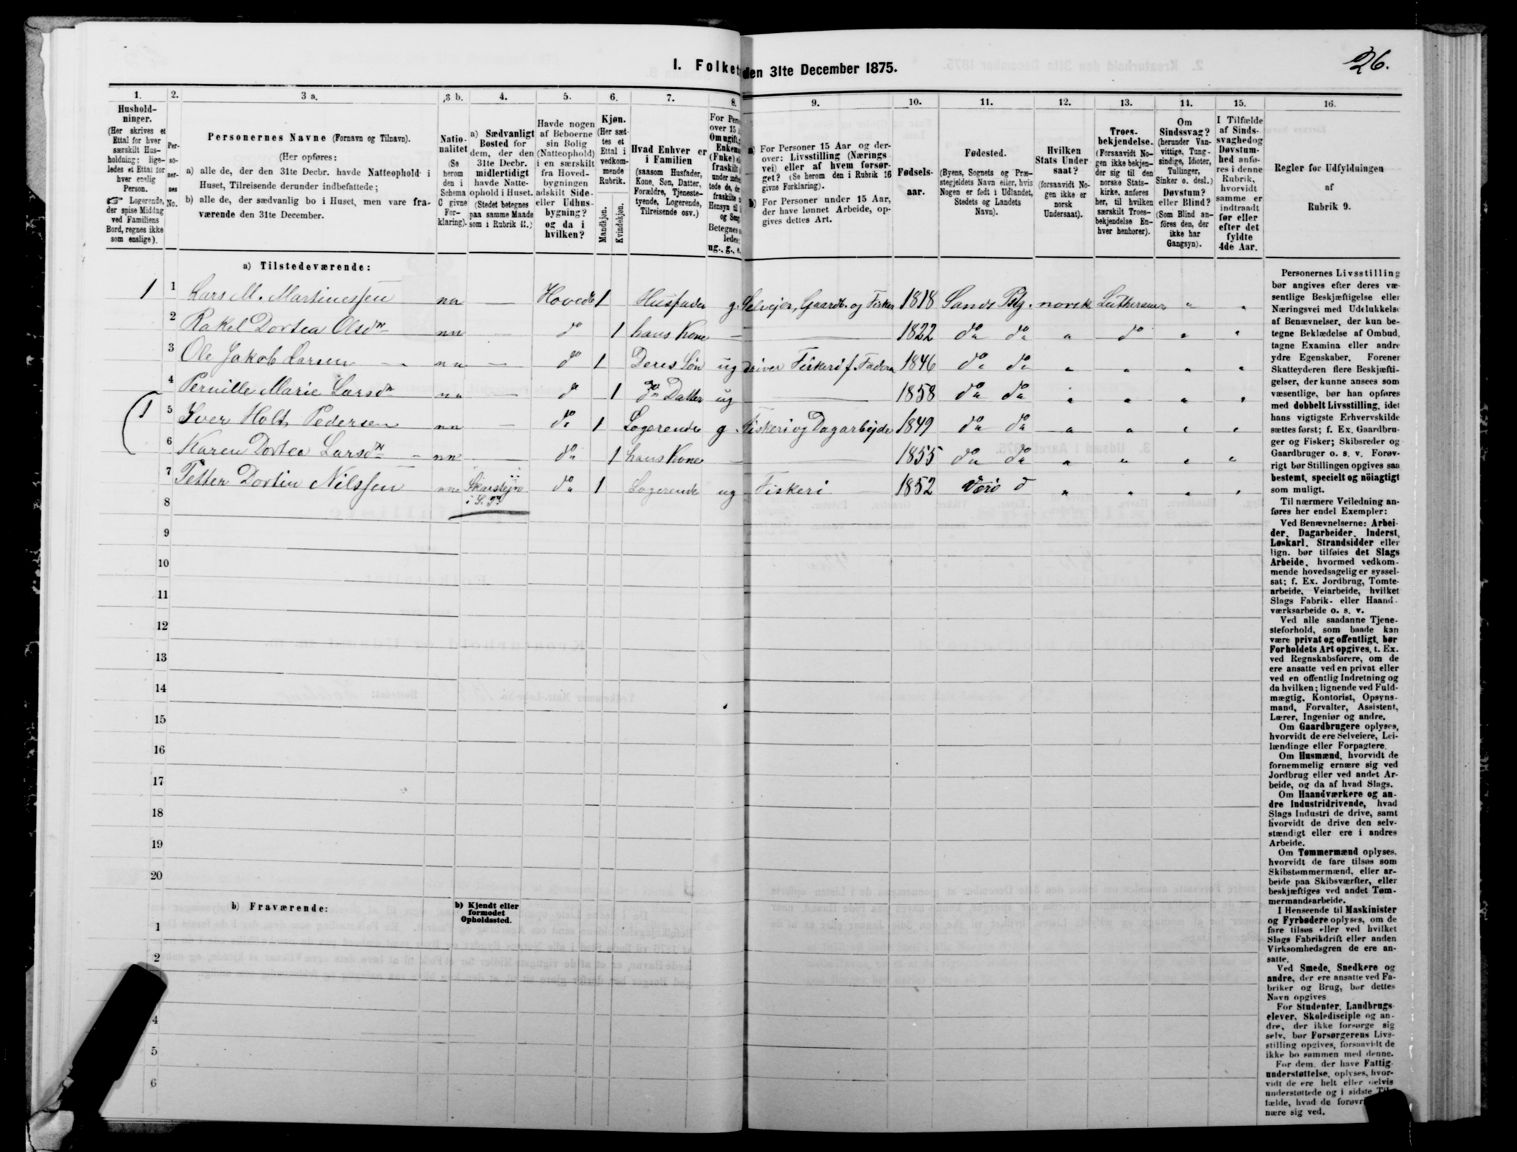 26.
I. Folket
den 31te December 1875.
1.
2.
3 a.
3 b.
4.
5.
6.
7.
8.
9.
10.
11.
12.
13.
14.
15.
16.
Hushold-
ninger.
(Her skrives et
Ettal for hver
særskilt Hus-
holdning; lige-
ledes et Ettal for
hver enslig
Person.
☞ Logerende,
der spise Middag
ved Familiens
Bord, regnes ikke
som enslige).
Per-
so-
ner-
nes
No.
Personernes Navne (Fornavn og Tilnavn).
(Her opføres:
a) alle de, der den 31te Decbr. havde Natteophold i
Huset, Tilreisende derunder indbefattede;
b) alle de, der sædvanlig bo i Huset, men vare fra-
værende den 31te December.
Natio-
nalitet
(Se
herom
den i
Schema
C givne
For-
klaring).
a) Sædvanligt
Bosted for
dem, der den
31te Decbr.
midlertidigt
havde Natte-
ophold i Huset.
(Stedet betegnes
paa samme Maade
som i Rubrik 11.)
Havde nogen
af Beboerne
sin Bolig
(Natteophold)
i en særskilt
fra Hoved-
bygningen
adskilt Side-
eller Udhus-
bygning?
og da i
hvilken?
Kjøn.
(Her sæt-
tes et
Ettal i
vedkom-
mende
Rubrik.
Mandkjøn.
Kvindekjøn.
Hvad Enhver er
i Familien
(saasom Husfader,
Kone, Søn, Datter,
Forældre, Tjeneste-
tyende, Logerende,
Tilreisende osv.)
For Pers
over 15
Om ugift,
Enkem
(Enke) e
fraskilt
ug., g., e.
a) For Personer 15 Aar og der-
over: Livsstilling (Nærings-
vei) eller af hvem forsør-
get? (Se herom den i Rubrik 16
givne Forklaring).
b) For Personer under 15 Aar,
der have lønnet Arbeide, op-
gives dettes Art.
Fødsels-
aar.
Fødested.
(Byens, Sognets og Præ-
stegjeldets Navn eller, hvis
Nogen er født i Udlandet,
Stedets og Landets
Navn).
Hvilken
Stats Under-
saat?
(forsaavidt No-
gen ikke er
norsk
Undersaat).
Troes-
bekjendelse.
(Forsaavidt No-
gen ikke bekjen-
der sig til den
norske Stats-
kirke, anføres
her, til hvilken
særskilt Troes-
bekjendelse En-
hver henhører).
Om
Sindssvag?
(herunder Van-
vittige, Tung-
sindige, Idioter,
Tullinger,
Sinker o. desl.)
Døvstum?
eller Blind?
(Som Blind an-
føres den, der
ikke har
Gangsyn).
I Tilfælde
af Sinds-
svaghed og
Døvstum-
hed anfø-
res i denne
Rubrik,
hvorvidt
samme er
indtraadt
før eller
efter det
fyldte
4de Aar.
Regler for Udfyldningen
af
Rubrik 9.
a) Tilstedeværende:
1 1 Lars M. Martinessen nn — Hovedb 1 Husfader g. Selveier, Gaardb. og Fisker 1818 Sands Pstg. norsk Lutheraner " "
2 Rakel Dortea Olsdtr nn — do 1 hans Kone — 1822 do do " do " "
3 Ole Jakob Larsen nn — do 1 Deres Søn ug driver Fiskeri f. Fadren 1846 do do " " " "
4 Pernille Marie Larsdtr nn — do 1 do Datter ug — 1858 do do " " " "
1 5 Iver Holth Pedersen nn — do 1 Logerende g. Fiskeri og Dagarbejde 1849 do do " " " "
6 Karen Dortea Larsdtr nn — do 1 hans Kone — 1855 do do " " " "
7 Petter Dortin Nilssen nn do 1 Logerende ug Fiskeri 1852 do " " " "
8
9
10
11
12
13
14
15
16
17
18
19
20
b) Fraværende:
b) Kjendt eller
formodet
Opholdssted.
1
2
4
5
6
Personernes Livsstilling
bør angives efter deres væ-
sentlige Beskjæftigelse eller
Næringsvei med Udelukkelse
af Benævnelser, der kun be-
tegne Beklædelse af Ombud,
tagne Examina eller andre
ydre Egenskaber. Forener
Skatteyderen flere Beskjæfti-
gelser, der kunne ansees som
væsentlige, bør han opføres
med dobbelt Livsstilling, idet
hans vigtigste Erhvervskilde
sættes først; f. Ex. Gaardbru-
ger og Fisker; Skibsreder og
Gaardbruger o. s. v. Forøv-
rigt bør Stillingen opgives saa
bestemt, specielt og nøiagtigt
som muligt.
Til nærmere Veiledning an-
føres her endel Exempler:
Ved Benævnelserne: Arbei-
der, Dagarbeider, Inderst,
Løskarl, Strandsidder eller
lign. bør tilføies det Slags
Arbeide, hvormed vedkom-
mende hovedsagelig er syssel-
sat; f. Ex. Jordbrug, Tomte-
arbeide, Veiarbeide, hvilket
Slags Fabrik- eller Haand-
værksarbeide o. s. v.
Ved alle saadanne Tjene-
steforhold, som baade kan
være privat og offentligt, bør
Forholdets Art opgives, t. Ex.
ved Regnskabsførere, om de
ere ansatte ved en privat eller
ved en offentlig Indretning og
da hvilken; lignende ved Fuld-
mægtig, Kontorist, Opsyns-
mand, Forvalter, Assistent,
Lærer, Ingeniør og andre.
Om Gaardbrugere oplyses,
hvorvidt de ere Selveiere, Lei-
lændinge eller Forpagtere.
Om Husmænd, hvorvidt de
fornemmelig ernære sig ved
Jordbrug eller ved andet Ar-
beide, og da af hvad Slags.
Om Haandværkere og an-
dre Industridrivende, hvad
Slags Industri de drive, samt
hvorvidt de drive den selv-
stændigt eller ere i andres
Arbeide.
Om Tømmermænd oplyses,
hvorvidt de fare tilsøs som
Skibstømmermænd, eller ar-
beide paa Skibsværfter, eller
beskjæftiges ved andet Tøm-
mermandsarbeide.
I Henseende til Maskinister
og Fyrbødere oplyses, om de
fare tilsøs eller ved hvilket
Slags Fabrikdrift eller anden
Virksomhedsgren de ere an-
satte.
Ved Smede, Snedkere og
andre, der ere ansatte ved Fa-
briker og Brug, bør dettes
Navn opgives
For Studenter, Landbrugs-
elever, Skoledisciple og an-
dre, der ikke forsørge sig
selv, bør Forsørgerens Livs-
stilling opgives, forsaavidt de
ikke bo sammen med denne.
For dem, der have Fattig-
understøttelse, oplyses, hvor-
vidt de ere helt eller delvis
understøttede og i sidste Til-
fælde, hvad de forøvr
nære sig ved.